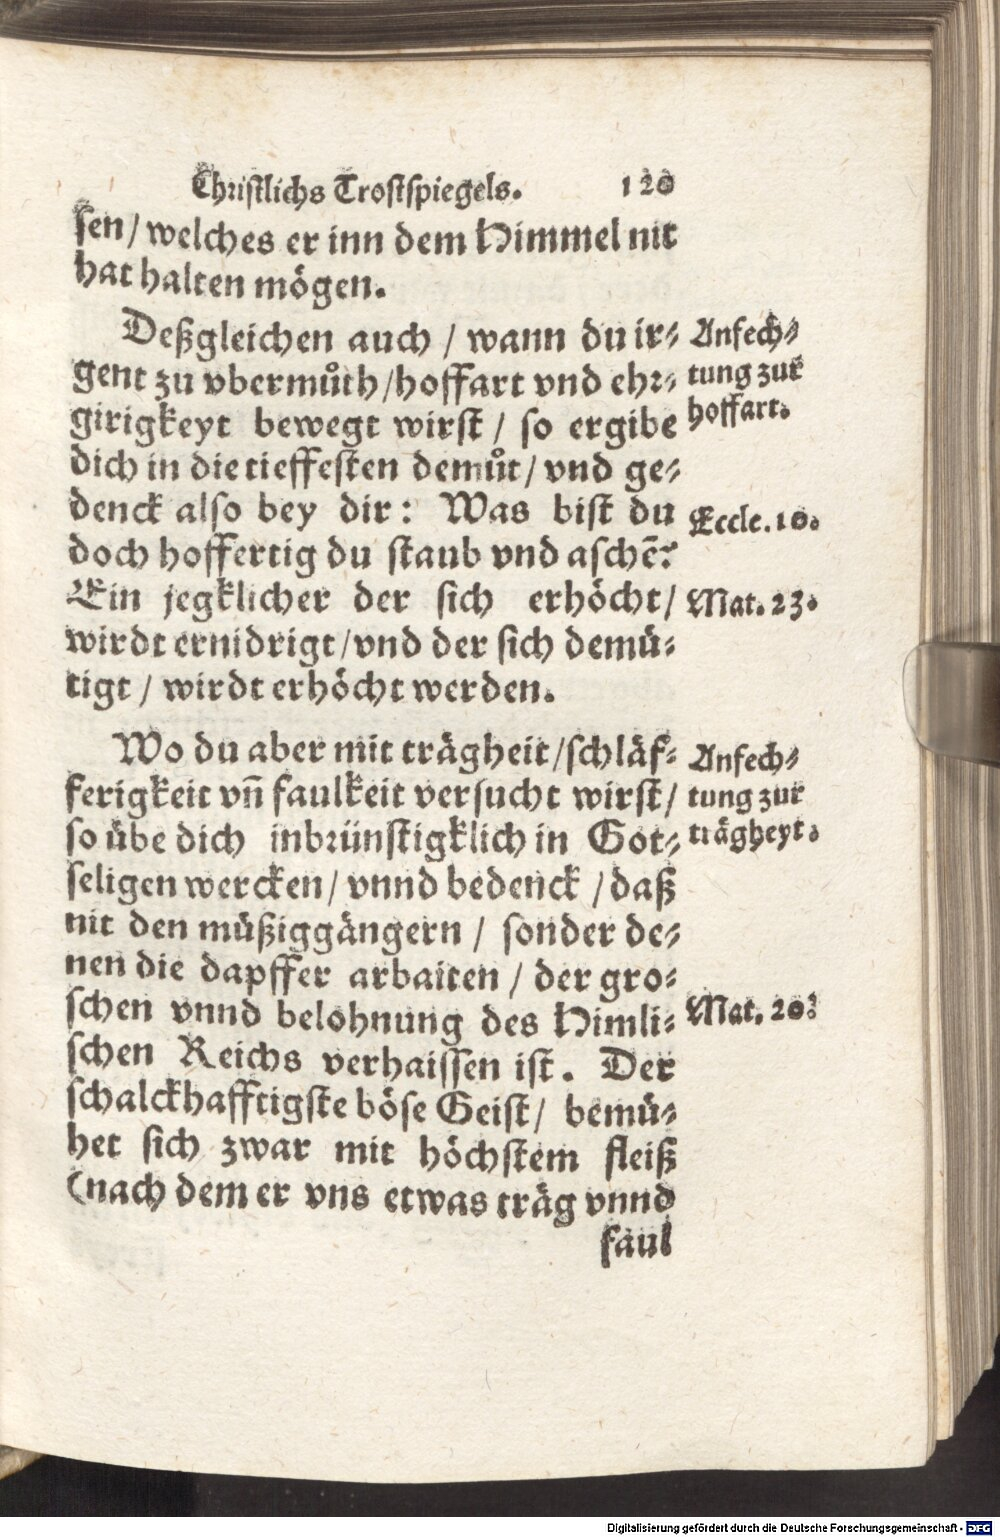 Christlichs Trostspiegels. 120
sen/ welches er inn dem Himmel nit
hat halten mögen.
Deßgleichen auch / wann du ir⸗
gent zu vbermůth/hoffart vnd ehr⸗
girigkeyt bewegt wirst / so ergibe
dich in die tieffesten demůt/ vnd ge⸗
denck also bey dir: Was bist du
doch hoffertig du staub vnd aschē?
Ein jegklicher der sich erhöcht/
wirdt ernidrigt/vnd der sich demü⸗
tigt / wirdt erhöcht werden.
Anfech⸗
tung zur
hoffart.
Eccle. 10.
Mat. 23.
Wo du aber mit trägheit/schläf⸗
ferigkeit vn̄ faulkeit versucht wirst/
so übe dich inbrünstigklich in Got⸗
seligen wercken/ vnnd bedenck /daß
nit den müßiggängern / sonder de⸗
nen die dapffer arbaiten / der gro⸗
schen vnnd belohnung des Himli⸗
schen Reichs verhaissen ist. Der
schalckhafftigste böse Geist/ bemü⸗
het sich zwar mit höchstem fleiß
(nach dem er vns etwas träg vnnd
faul
Anfech⸗
tung zur
trägheyt.
Mat. 20.
Digitalisierung gefördert durch die Deutsche Forschungsgemeinschaft - DFG